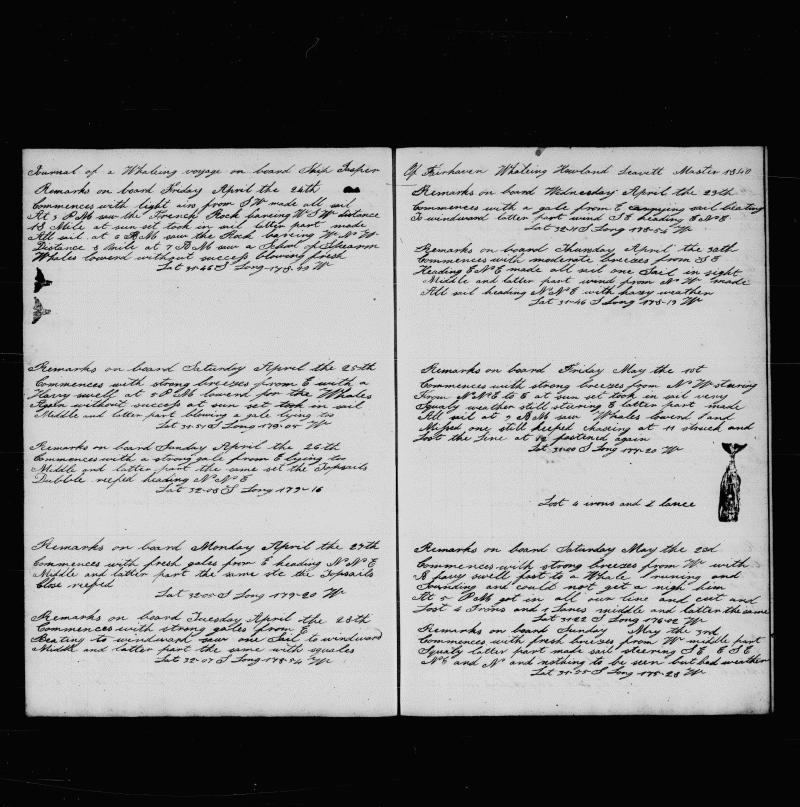 Journal of a Whaleing voyage on board Ship Jasper
Remarks on board Friday April the 24th
Commences with light airs from S W made all sail
At 3 P M saw the French Rock bareing W S W distance
18 Mile at sun set took in sail latter part made
All sail at 6 A M saw the Rock bareing W N W
Distance 8 Mile at 7 A M saw a School of Spearm
Whales lowerd without success blowing fresh
Lat 31-45 S Long 178-49 W
Remarks on board Saturday April the 25th
Commences with strong breezes from E with a
Havy swell at 2 P M lowerd for the Whales
Again without success at sun set took in sail
Middle and latter part blowing a gale lying to
Lat 31-51 S Long 179-05 W
Remarks on board Sunday April the 26th
Commences with a strong gale from E lying to
Middle and latter part the same set the Topsails
Dubble reefed heading N N E
Lat 32-08 S Long 179-16
Remarks on board Monday April the 27th
Commences with fresh gales from E heading N N E
Middle and latter part the same the Topsails
Close reefed
Lat 32-05 S Long 179-20 W
Remarks on board Tuesday April the 28th
Commences with strong gales from E
Beating to windward saw one Sail to windward
Middle and latter part the same with squales
Lat 32-07 S Long 178-54 W
Of Fairhaven Whaleing Howland Leavitt Master 1840
Remarks on board Wednesday April the 29th
Commences with a gale from E carrying sail beating
To windward latter part wind S E heading E N E
Lat 32-11 S Long 178-54 W
Remarks on board Thursday April the 30th
Commences with moderate breezes from S E
Heading E N E made all sail one Sail in sight
Middle and latter part wind from N W made
All sail heading N N E with hazy weather
Lat 31-46 S Long 178-19 W
Remarks on board Friday May the 1st
Commences with strong breezes from N W stearing
From N N E to E at sun set took in sail verry
Squaly weather still stearing E latter part made
All sail at 7 A M saw Whales lowerd and
Missed one still keeped chasing at 11 struck and
Lost the line at 12 fastened again
Lat 31-20 S Long 177-20 W
Lost 4 irons and 2 lance
Remarks on board Saturday May the 2nd
Commences with strong breezes from W with
A havy swill fast to a Whale runing and
Sounding and could not get a nigh him
At 5 P M got in all our line and cut and
Lost 4 Irons and 2 Lances middle and latter the same
Lat 31-22 S Long 176-02 W
Remarks on board Sunday May the 3rd
Commences with fresh breezes from W middle part
Squaly latter part made sail steering S E E S E
N E and N and nothing to be seen but bad weather
Lat 31-55 S Long 175-28 W